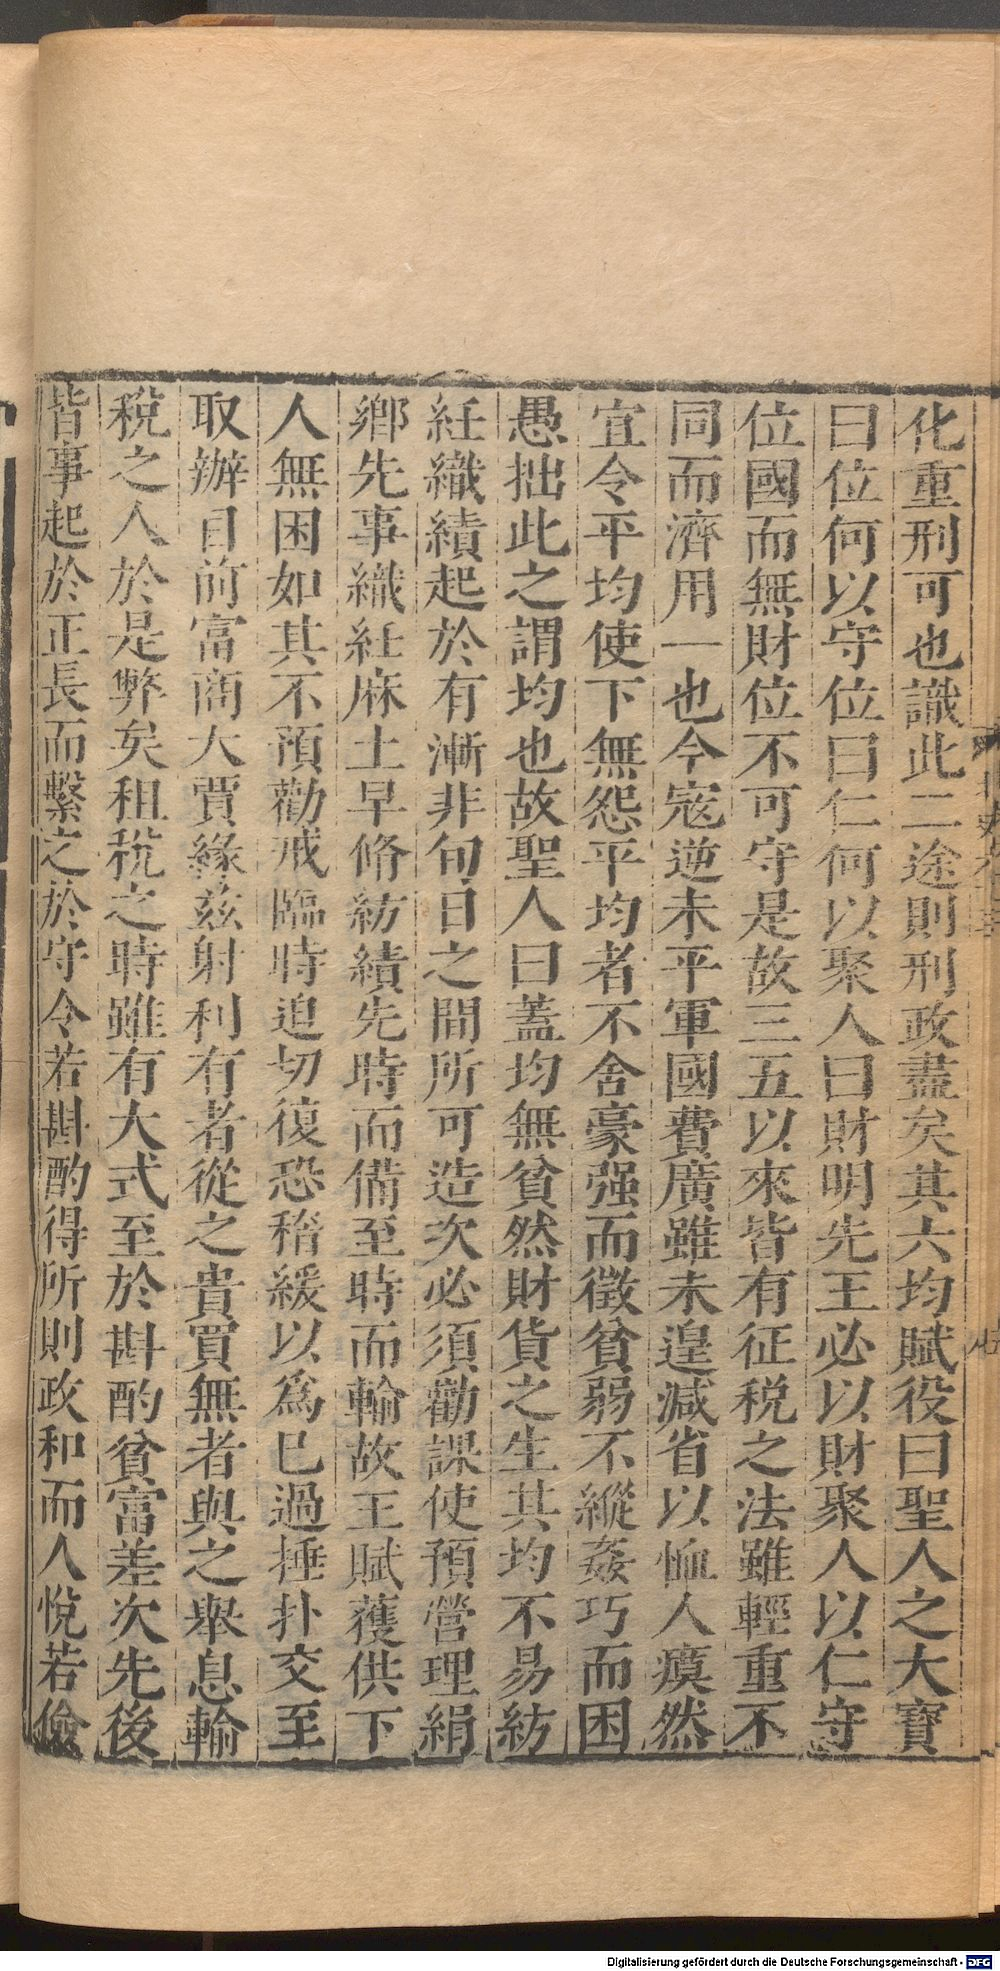 化重刑可也識此二途則刑政盡矣其六均賦役曰聖人之大寶
曰位何以守位曰仁何以聚人曰財明先王必以財聚人以仁守
位國而無財位不可守是故三五以來皆有征税之法雖輕重不
同而濟用一也今寇逆未平軍國費廣雖未遑減省以恤人瘼然
宜令平均使下無怨平均者不舍豪强而徵貧弱不縱姦巧而困
愚拙此之謂均也故聖人曰蓋均無貧然財貨之生其均不易紡
紝織績起於有漸非旬日之間所可造次必須勸課使預營理絹
鄉先事織紝麻土早脩紡績先時而備至時而輸故王賦獲供下
人無困如其不預勸戒臨時迫切復恐稽緩以爲已過捶扑交至
取辦目前富商大賈緣兹射利有者從之貴買無者與之舉息輸
税之人於是弊矣租税之時雖有大式至於斟酌貧富差次先後
皆事起於正長而繫之於守令若斟酌得所則政和而人悅若儉
Digitalisierung gefördert durch die Deutsche Forschungsgemeinschaft - DFG